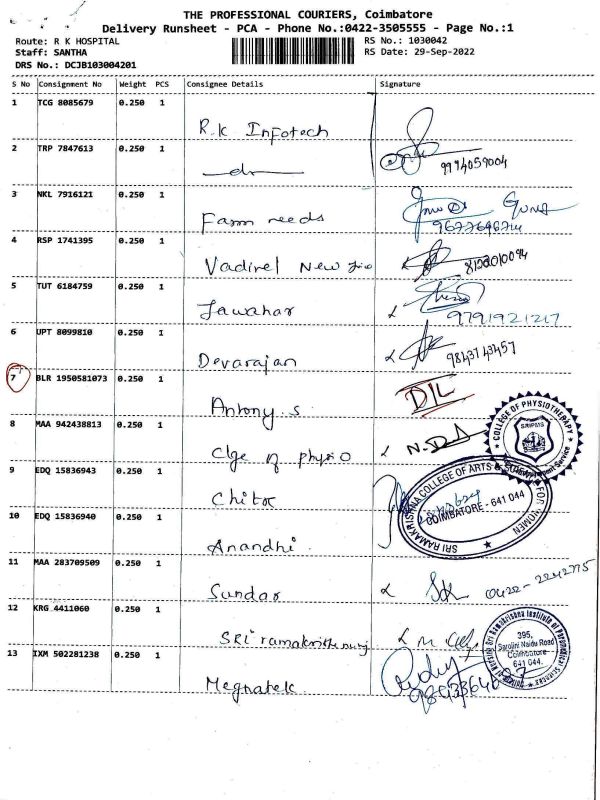 THE PROFESSIONAL COURIERS, Coimbatore
Delivery Runsheet - PCA - Phone No.:0422-3505555 - Page No.:1
Route: R K HOSPITAL
RS No.: 1030042
Staff: SANTHA
RS Date: 29-Sep-2022
DRS No.: DCJB103004201
S No Consignment No Weight PCS Consignee Details Signature
1 TCG 8085679 0.250 1
R.K Infotech
2 TRP 7847613 0.250 1
do 9994059004
3 NKL 7916121 0.250 1
Farm needs
4 RSP 1741395 0.250 1
Vadivel New
5 TUT 6184759 0.250 1
Jawahar 9791921217
6 UPT 8099810 0.250 1
Devarajan 9843743457
7 BLR 1950581073 0.250 1
Antony.s D/L
8 MAA 942438813 0.250 1
Clge of physio
COLLEGE OF PHYSIOTHERAPY
SRIPMS
9 EDQ 15836943 0.250 1
SRI RAMAKRISHNA COLLEGE OF ARTS & SCIENCE FOR WOMEN
COIMBATORE - 641 044
10 EDQ 15836940 0.250 1
Anandhi
11 MAA 283709509 0.250 1
Sundar 0422-2242775
12 KRG 4411060 0.250 1
SRI
395,
Sarojini Naidu Road
Coimbatore
641 044.
13 IXM 502281238 0.250 1